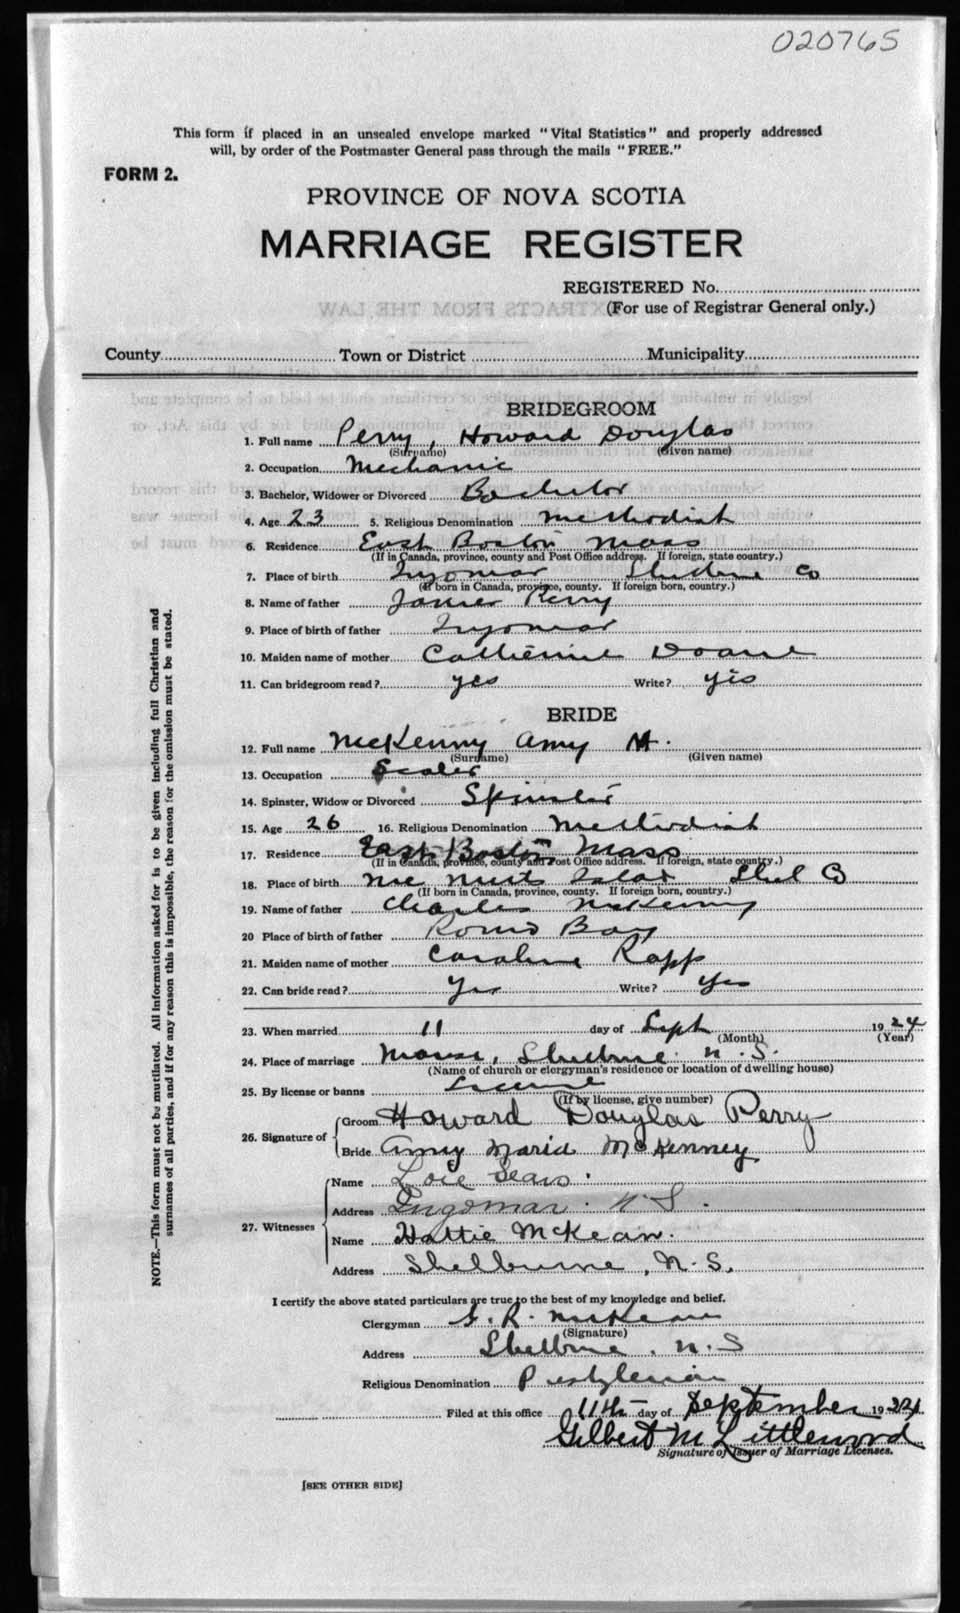 020765
This form if placed in an unsealed envelope marked "Vital Statistics" and properly addressed
will, by order of the Postmaster General pass through the mails "FREE."
FORM 2.
PROVINCE OF NOVA SCOTIA
MARRIAGE REGISTER
REGISTERED No.
(For use of Registrar General only.)
County Town or District Municipality
BRIDEGROOM
1. Full name Perry, Howard Douglas
(Surname) (Given name)
2. Occupation Mechanic
3. Bachelor, Widower or Divorced Bachelor
4. Age 23 5. Religious Denomination Methodist
6. Residence East Boston Mass
(If in Canada, province, county and Post Office address. If foreign, state country.)
7. Place of birth Ingomar Shelburne Co
(If born in Canada, province, county. If foreign born, country.)
8. Name of father James Perry
9. Place of birth of father Ingomar
10. Maiden name of mother Catherine Doane
11. Can bridegroom read? yes Write? yes
BRIDE
12. Full name McKenny Amy M.
(Surname) (Given name)
13. Occupation Sealer
14. Spinster, Widow or Divorced Spinster
15. Age 26 16. Religious Denomination Methodist
17. Residence East Boston Mass
(If in Canada, province, county and Post Office address. If foreign, state country.)
18. Place of birth Mc Nutts Island Shel Co
(If born in Canada, province, county. If foreign born, country.)
19. Name of father Charles McKenny
20 Place of birth of father Bay
21. Maiden name of mother Caroline Rapp
22. Can bride read? Yes Write? Yes
23. When married 11 day of Sept 1924
(Month) (Year)
24. Place of marriage Manse, Shelburne N.S.
(Name of church or clergyman's residence or location of dwelling house)
25. By license or banns License
(If by license, give number)
26. Signature of Groom Howard Douglas Perry
Bride Amy Maria McKenney
27. Witnesses Name Sears
Address Ingomar N S.
Name Hattie McKean.
Address Shelburne, N.S.
I certify the above stated particulars are true to the best of my knowledge and belief.
Clergyman G. R. McKean
(Signature)
Address Shelburne, N.S
Religious Denomination Presbyterian
Filed at this office 11th day of September 1924
Gilbert M Littlewood
Signature of Issuer of Marriage Licenses.
[SEE OTHER SIDE]
NOTE.—This form must not be mutilated. All information asked for is to be given including full Christian and
surnames of all parties, and if for any reason this is impossible, the reason for the omission must be stated.